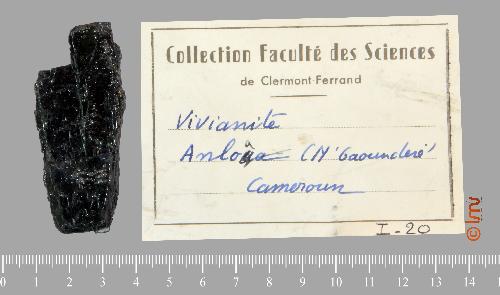 Collection Faculté des Sciences
de Clermont-Ferrand
Vivianite
Anloûa (N'Gaounderé)
Cameroun
I-20
0 1 2 3 4 5 6 7 8 9 10 11 12 13 14